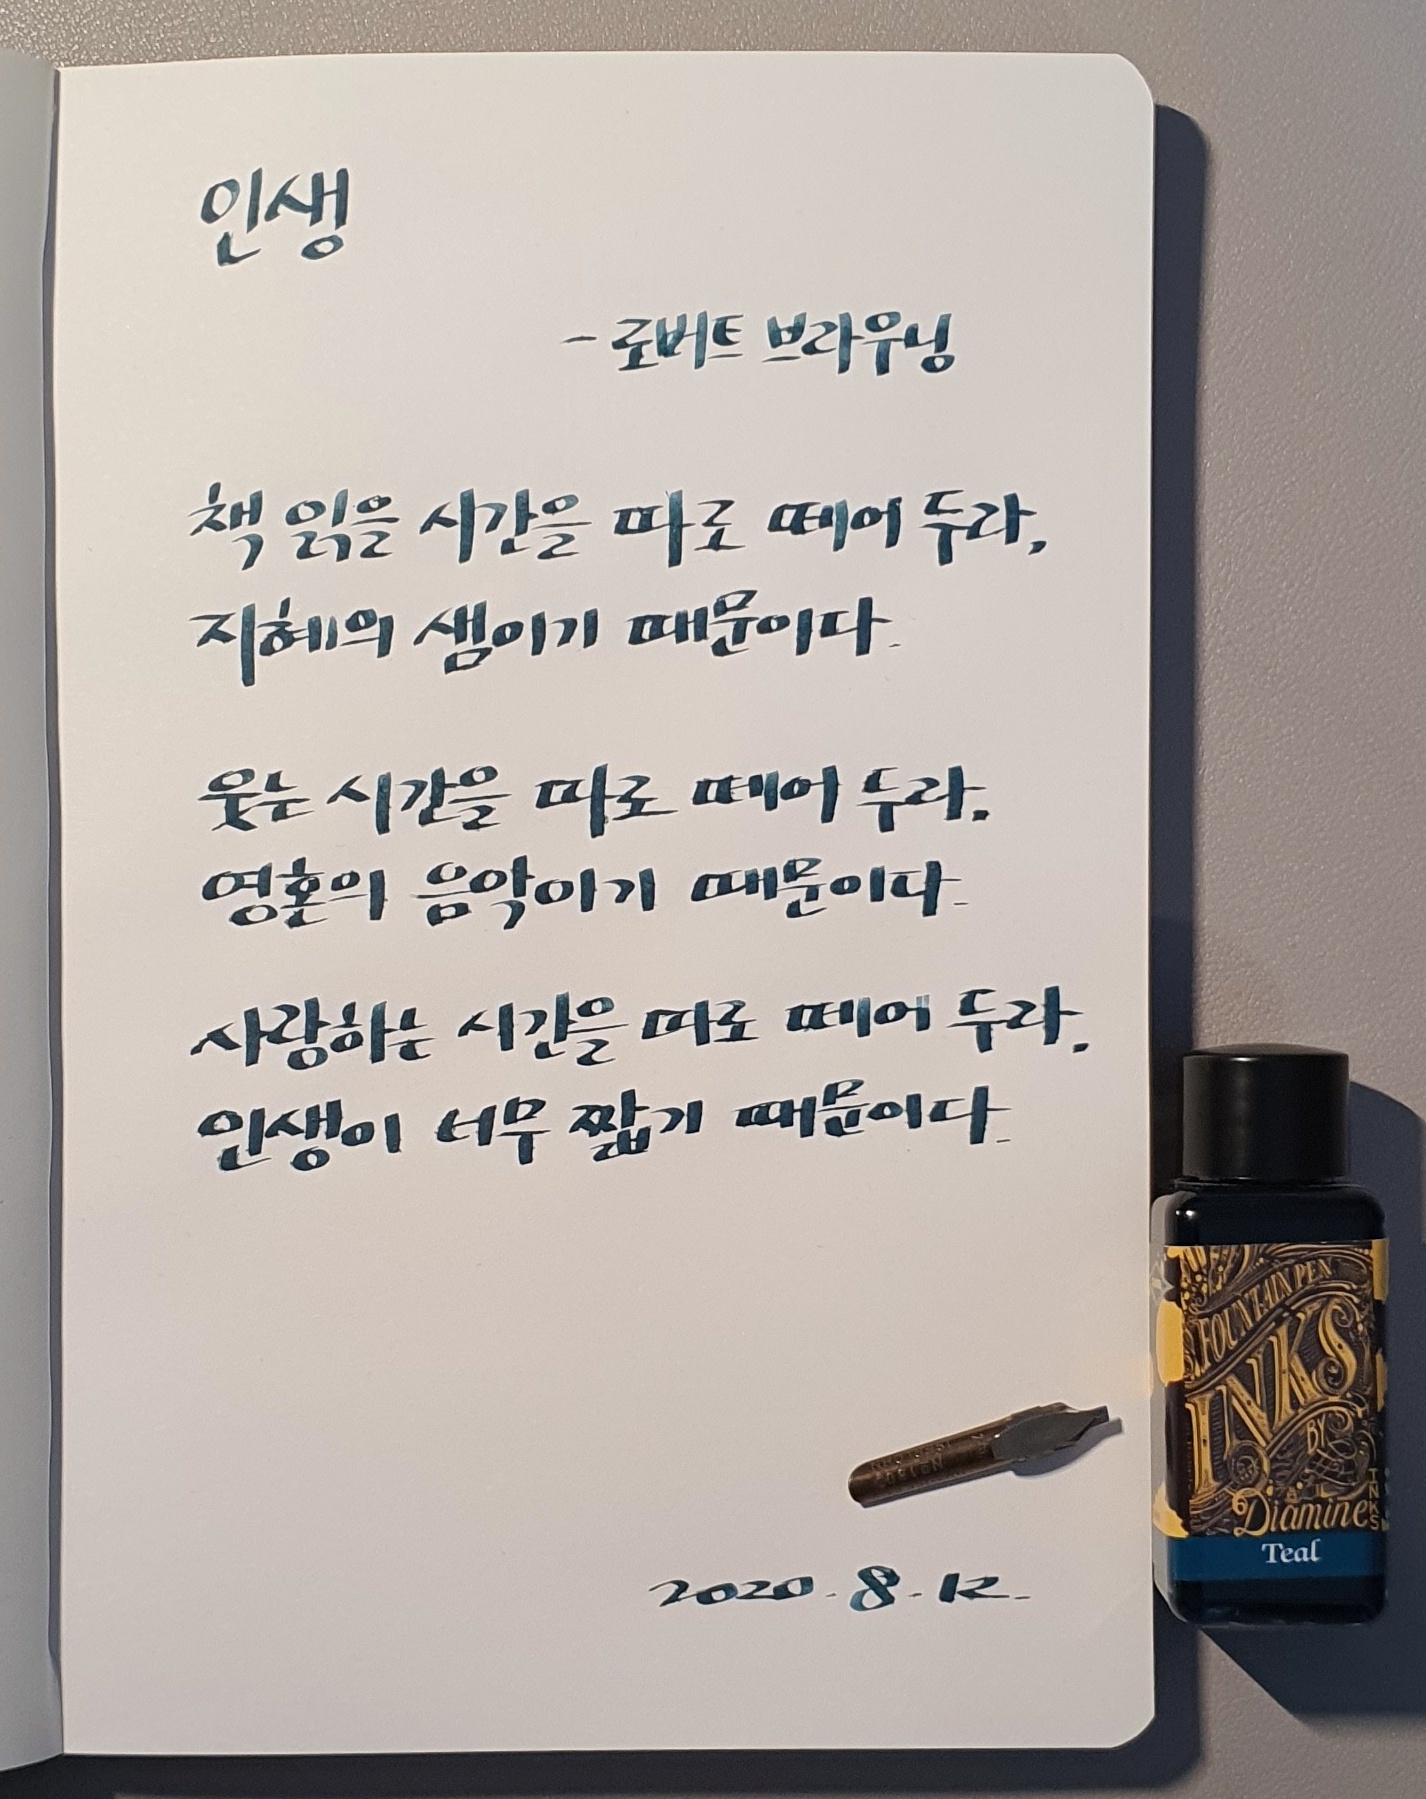 인생
- 로버트 브라우닝
책 읽을 시간을 따로 떼어 두라,
지혜의 샘이기 때문이다.
웃는 시간을 따로 떼어 두라.
영혼의 음악이기 때문이다.
사랑하는 시간을 따로 떼어 두라.
인생이 너무 짧기 때문이다.
2020. 8. 12.
FOUNTAIN PEN
INKS
BY
Diamine
Teal